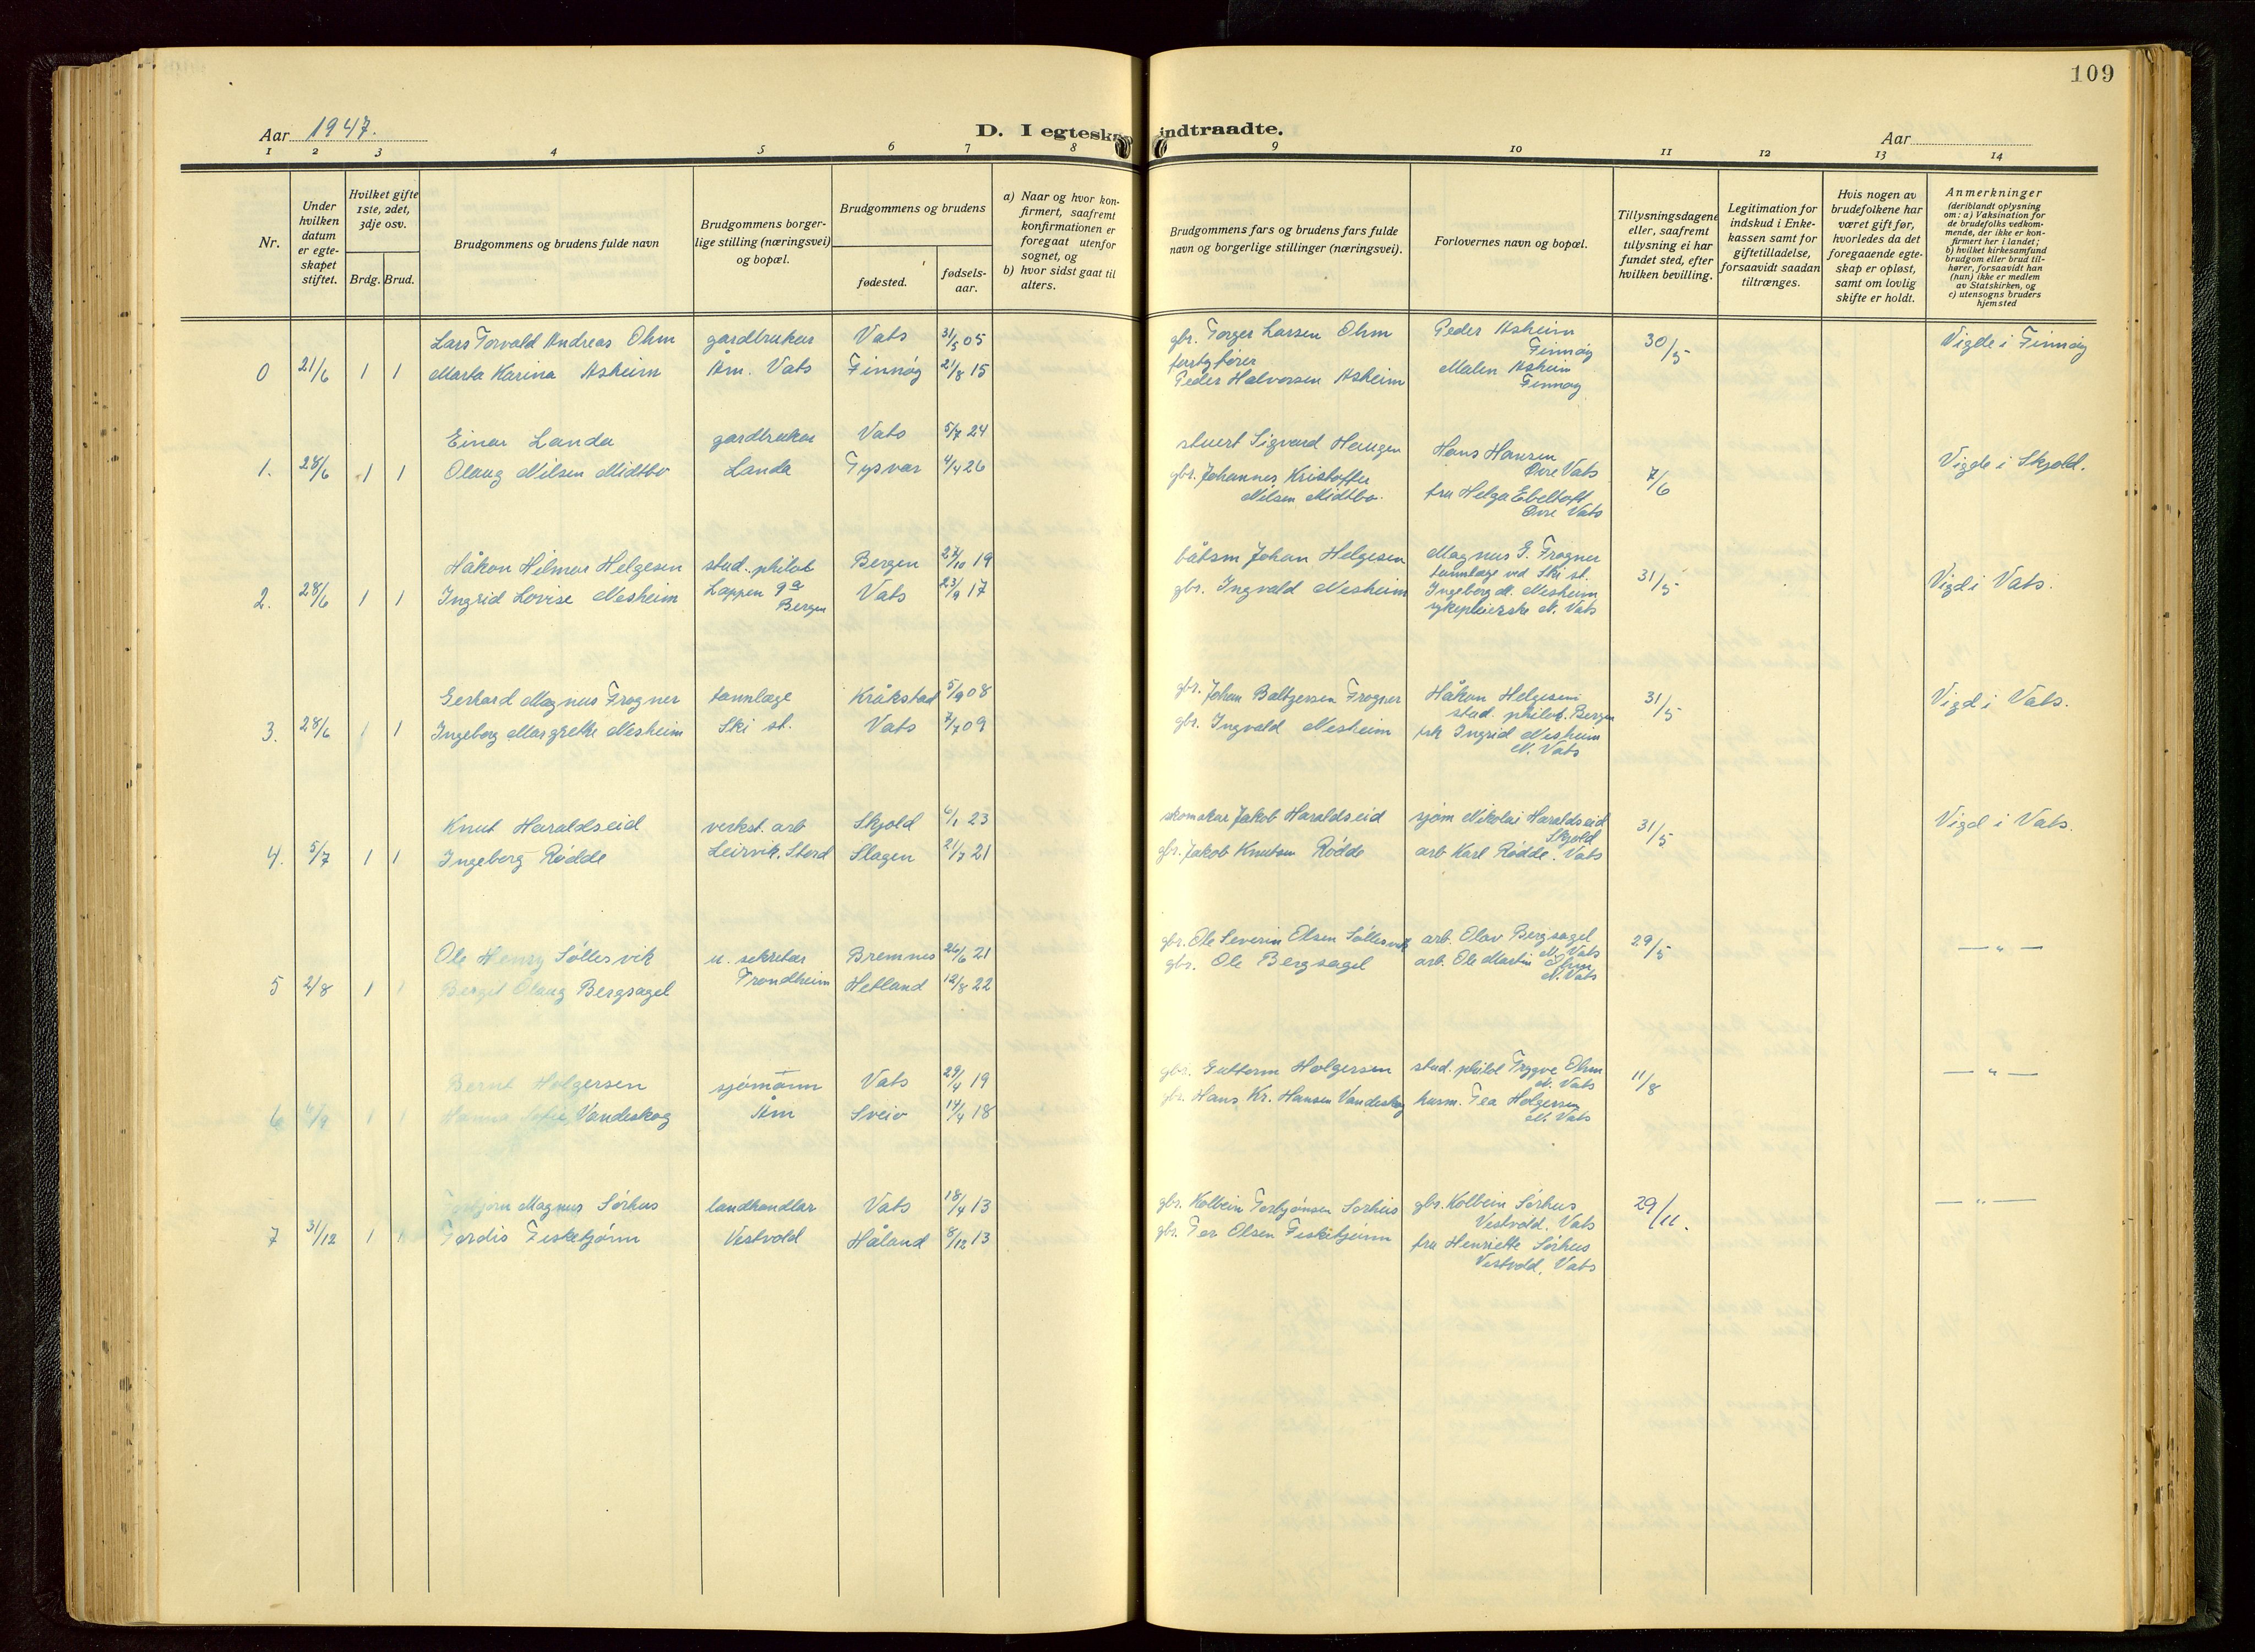 109
Aar 1947.
D. I egteska
indtraadte.
Aar
1 2 3 4 5 6 7 8 9 10 11 12 13 14
Nr.
Under hvilken datum er egteskapet stiftet.
Hvilket gifte 1ste, 2det, 3dje osv.
Brdg. Brud.
Brudgommens og brudens fulde navn
Brudgommens borgerlige stilling (næringsvei) og bopæl.
Brudgommens og brudens
fødested.
fødselsaar.
a) Naar og hvor konfirmert, saafremt konfirmationen er foregaat utenfor sognet, og
b) hvor sidst gaat til alters.
Brudgommens fars og brudens fars fulde navn og borgerlige stillinger (næringsvei).
Forlovernes navn og bopæl.
Tillysningsdagene eller, saafremt tillysning ei har fundet sted, efter hvilken bevilling.
Legitimation for indskud i Enkekassen samt for giftetilladelse, forsaavidt saadan tiltrænges.
Hvis nogen av brudefolkene har været gift før, hvorledes da det foregaaende egteskap er opløst, samt om lovlig skifte er holdt.
Anmerkninger (deriblandt oplysning om: a) Vaksination for de brudefolks vedkommende, der ikke er konfirmert her i landet; b) hvilket kirkesamfund brudgom eller brud tilhører, forsaavidt han (hun) ikke er medlem av Statskirken, og c) utensogns bruders hjemsted
Lars Torvald Andreas Ohm gardbruker Vats 31/5 05 gbr. Torger Larsen Ohm Peder Asheim Finnøy 30/5 Vigde i Finnøy
0 21/6 1 1 Marta Karina Asheim Åm. Vats Finnøy 21/8 15 Peder Halvorsen Asheim Malen Asheim Finnøy
Einar Landa gardbruker Vats 5/7 24 stuert Sigvard Haugen Hans Hansen Øvre Vats 7/6 Vigde i Skjold.
1. 28/6 1 1 Olaug Nilsen Midtbø Landa Tysvær 4/4 26 gbr. Johannes Kristoffer Nilsen Midtbø. fru Helga Ebeltoft Øvre Vats
Håkon Hilmar Helgesen stud. philol Bergen 23/10 19 båtsm Johan Helgesen Magnus G. Frogner tannlæge ved Ski st. 31/5 Vigd i Vats.
2. 28/6 1 1 Ingrid Lovise Nesheim Lappen 9a Bergen Vats 23/9 17 gbr. Ingvald Nesheim Ingeborg M. Nesheim sykepleierske N. Vats
Gerhard Magnus Frogner tannlæge Kråkstad 5/9 08 gbr. Johan Baltzersen Frogner Håkon Helgesen stud. philol. Bergen 31/5 Vigd i Vats.
3. 28/6 1 1 Ingeborg Margrethe Nesheim Ski st. Vats 7/7 09 gbr. Ingvald Nesheim frk Ingrid Nesheim N. Vats
Knut Haraldseid verkst. arb Skjold 6/1 23 skomakar Jakob Haraldseid sjøm Nikolai Haraldseid Skjold 31/5 Vigd i Vats.
4. 5/7 1 1 Ingeborg Rødde Leirvik, Stord Slagen 21/7 21 gbr. Jakob Knutsen Rødde arb Karl Rødde. Vats
Ole Henry Søllesvik u. sekretær Bremnes 26/6 21 gbr. Ole Severin Olsen Søllesvik arb. Olav Bergsagel N. Vats 29/5 — " —
5 2/8 1 1 Bergit Olaug Bergsagel Trondheim Hetland 12/8 22 gbr. Ole Bergsagel arb. Ole Martin Ohm N. Vats
Bernt Holgersen sjømann Vats 29/4 19 gbr. Guttorm Holgersen stud. philol Trygve Ohm N. Vats 11/8 — " —
6 1 1 Hanna Sofie Vandeskog Åm Sveio 14/4 18 gbr. Hans Kr. Hansen Vandeskog husm. Tea Holgersen N. Vats
Torbjørn Magnus Sørhus landhandlar Vats 18/4 13 gbr. Kolbein Torbjørnsen Sørhus gbr. Kolbein Sørhus Vestvold. Vats 29/11. — " —
7 31/12 1 1 Tordis Fisketjønn Vestvold Håland 8/12 13 gbr. Tor Olsen Fisketjønn fru Henriette Sørhus Vestvold, Vats